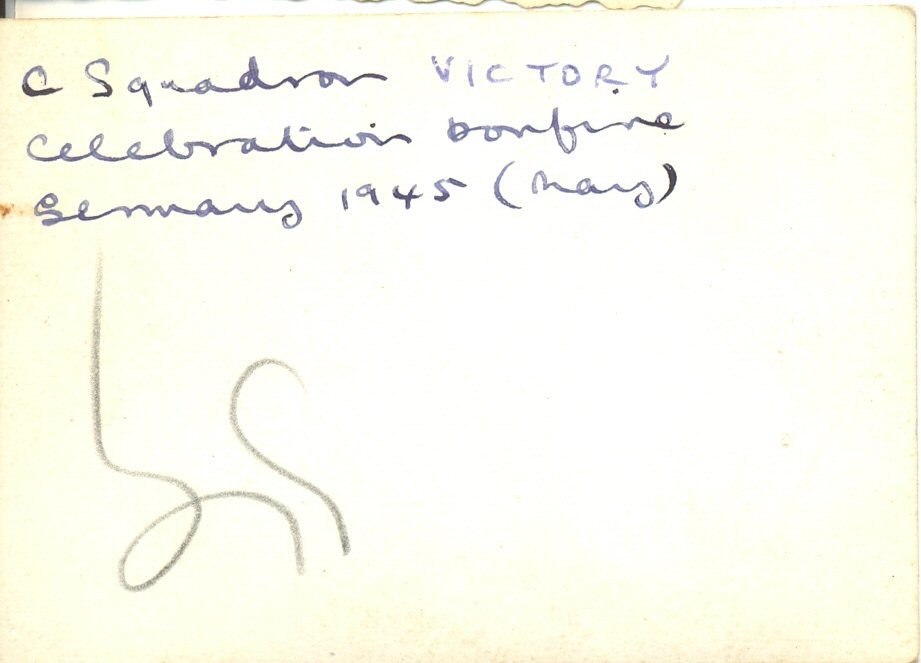 C Squadron VICTORY
Celebration bonfire
Germany 1945 (May)